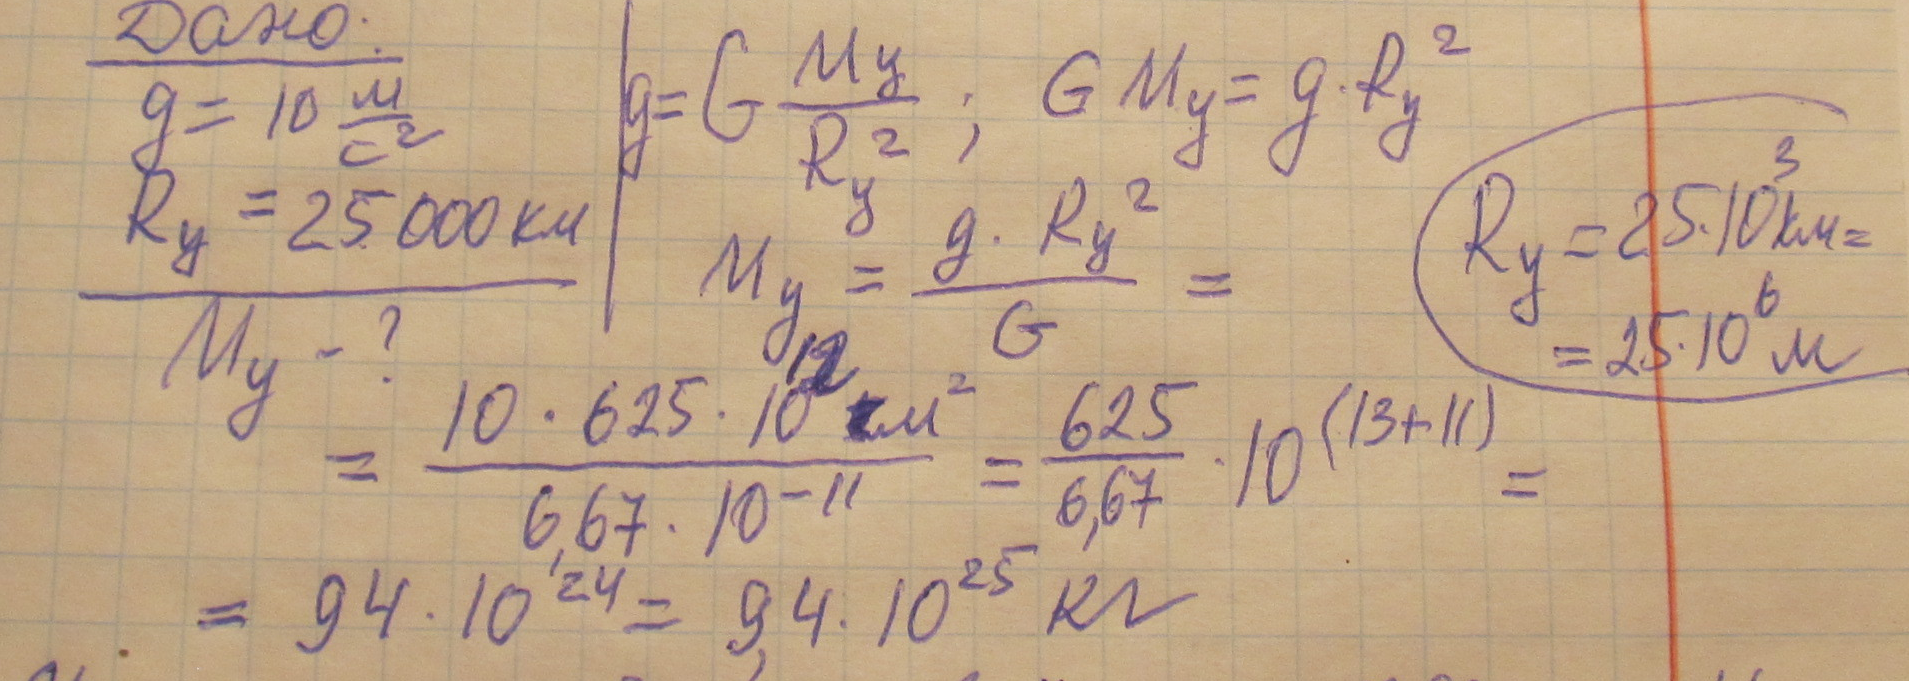 Дано:
g = 10 м/с²
R_у = 25 000 км
M_у - ?
g = G M_у / R_у² ; G M_у = g · R_у²
M_у = g · R_у² / G =
R_у = 25 · 10³ км =
= 25 · 10⁶ м
= 10 · 625 · 10¹² м² / 6,67 · 10⁻¹¹ = 625 / 6,67 · 10^(13+11) =
= 94 · 10²⁴ = 9,4 · 10²⁵ кг